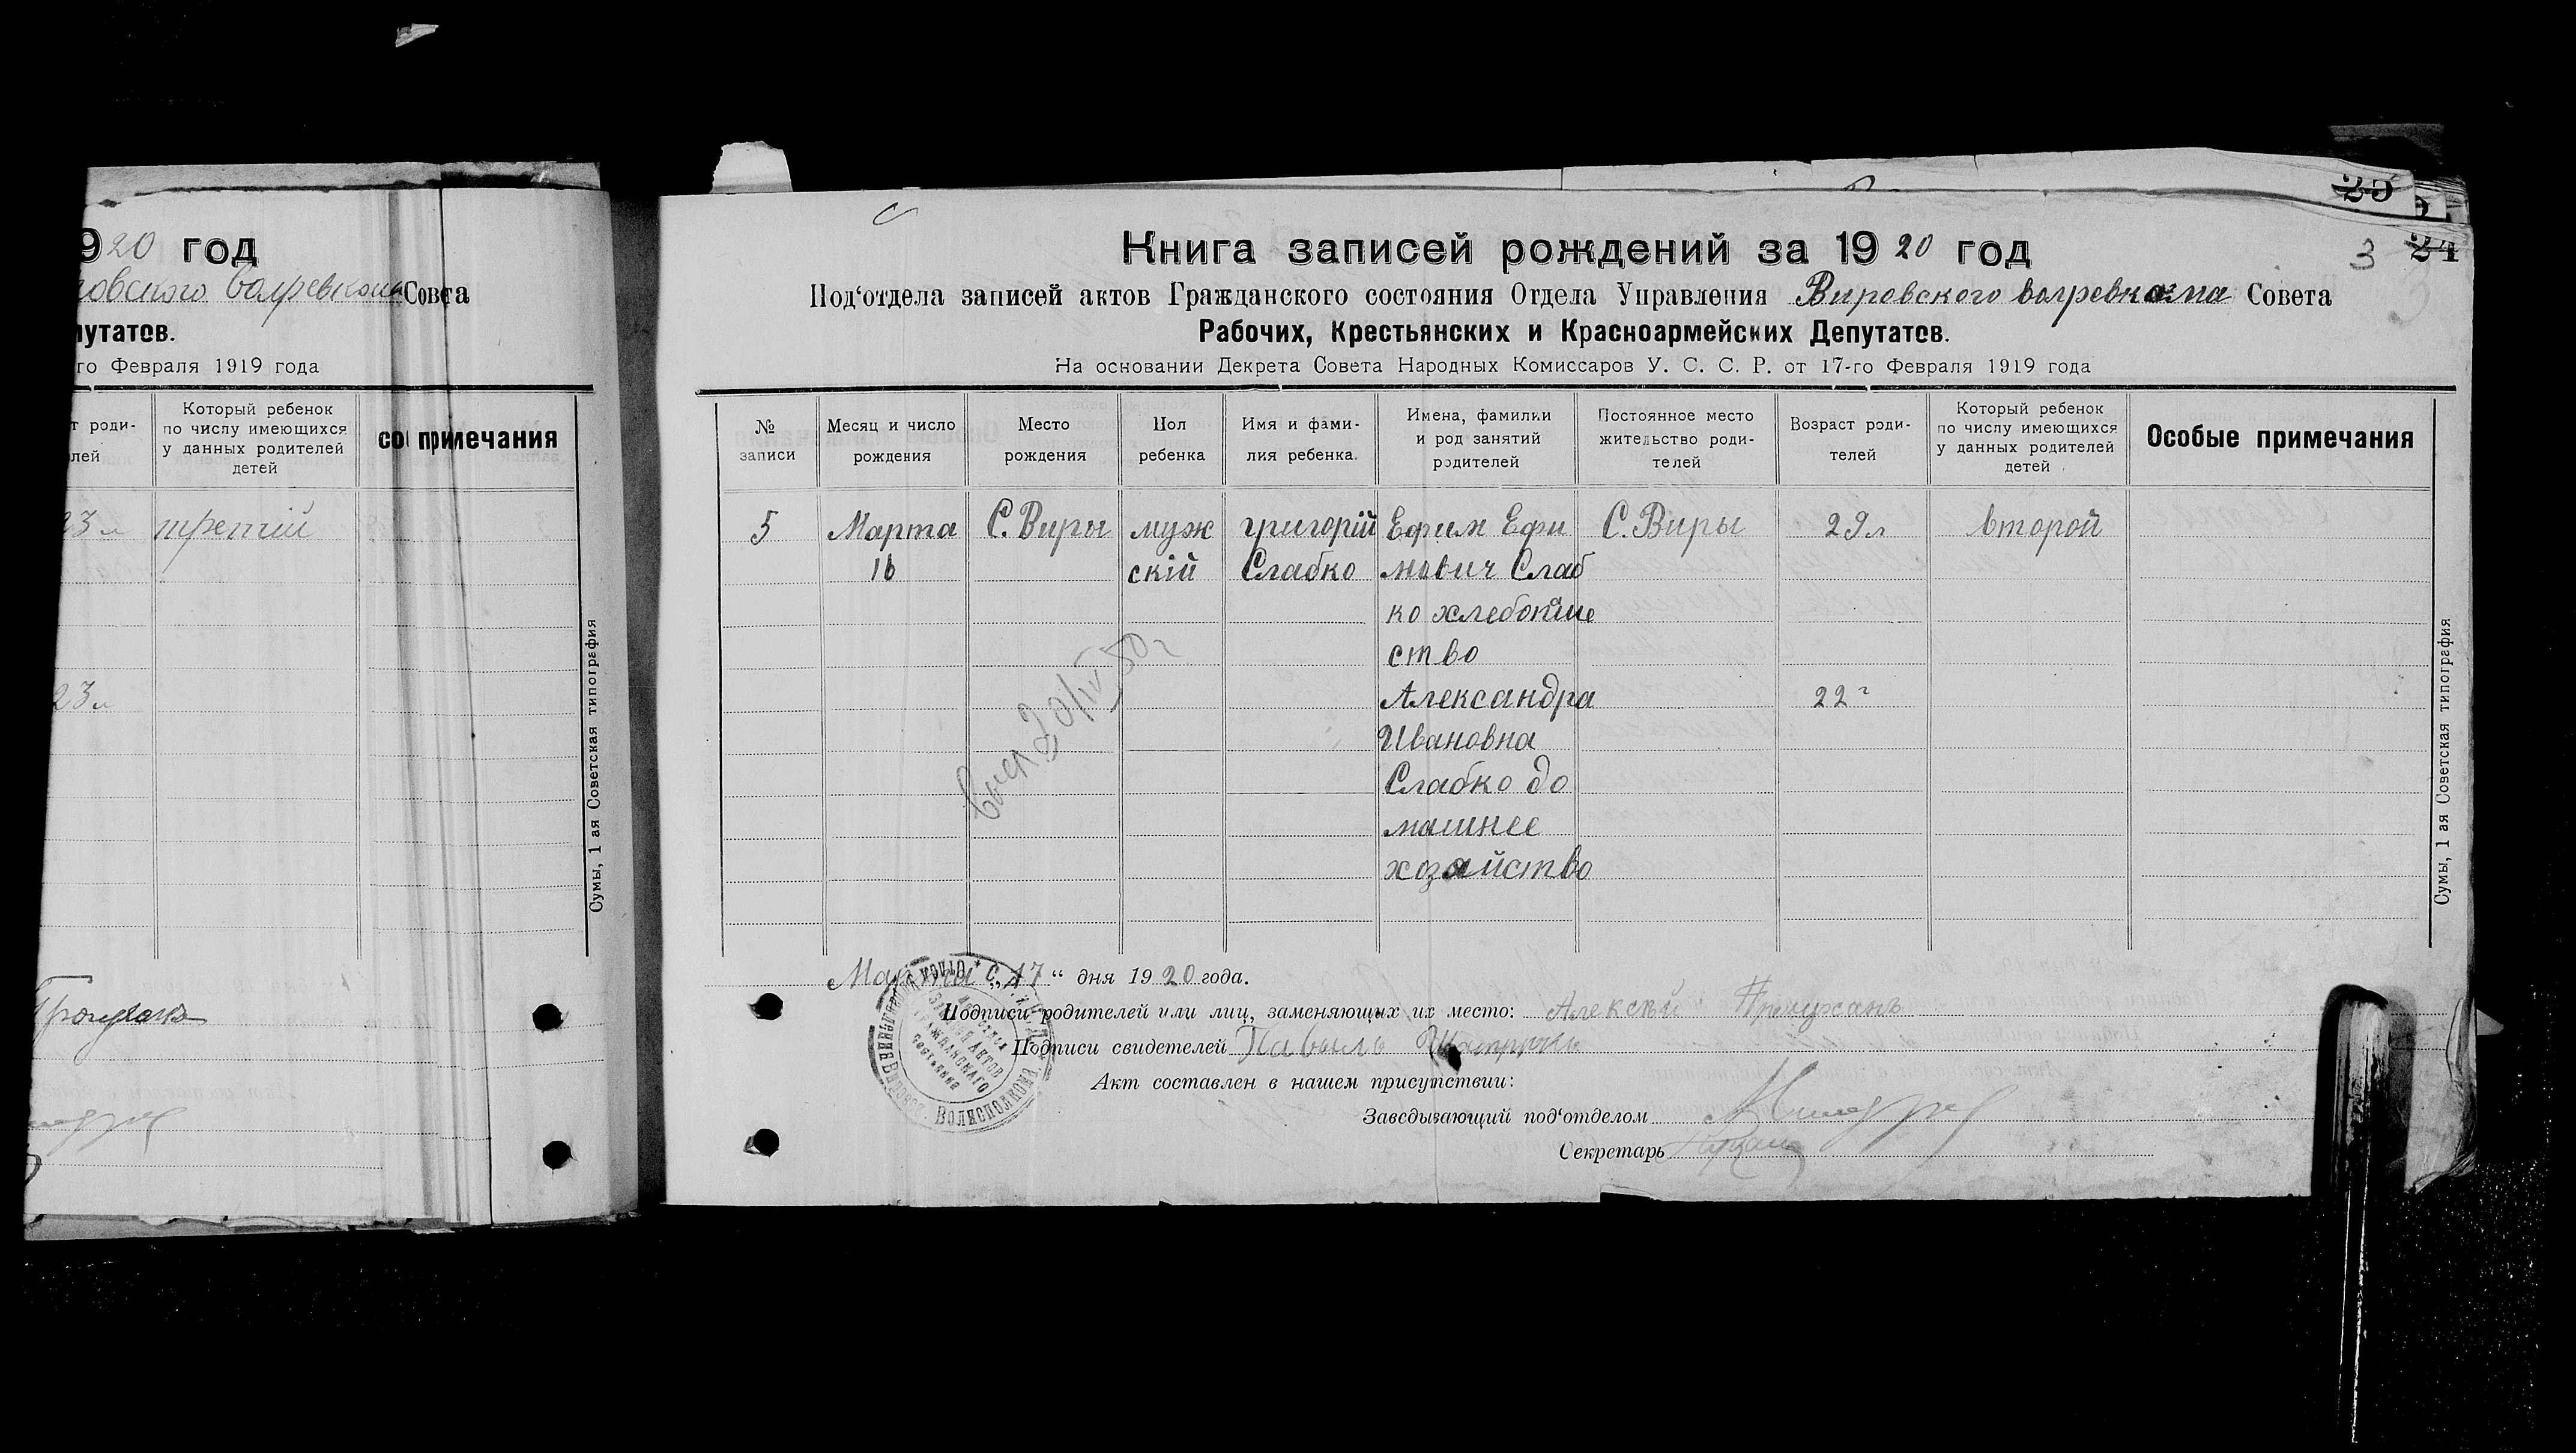 20 год
Совета
путатов.
го Февраля 1919 года
т роди-
лей
Который ребенок
по числу имеющихся
у данных родителей
детей
примечания
23 л третій
23 л
Сумы, 1 ая Советская типография
25
3 24
Книга записей рождений за 1920 год
Под‘отдела записей актов Гражданского состояния Отдела Управления Вировского волревкома Совета
Рабочих, Крестьянских и Красноармейских Депутатов.
На основании Декрета Совета Народных Комиссаров У. С. С. Р. от 17-го Февраля 1919 года
№
записи
Месяц и число
рождения
Место
рождения
Пол
ребенка
Имя и фами-
лия ребенка.
Имена, фамилии
и род занятий
родителей
Постоянное место
жительство роди-
телей
Возраст роди-
телей
Который ребенок
по числу имеющихся
у данных родителей
детей
Особые примечания
5 Марта С. Виры муж григорій Ефим Ефи С. Виры 29 л второй
16 скій Слабко мович Слаб
ко
ство
Александра 22 г
Ивановна
Слабко до
машнее
хозяйство
20/IV 50 г
Сумы, 1 ая Советская типография
Марта „17“ дня 1920 года.
Подписи родителей или лиц, заменяющих их место: Алексѣй
Подписи свидетелей
Акт составлен в нашем присутствии:
Заведывающий под‘отделом
Секретарь
Записей Актов
Гражданскаго
состояния
Волисполкома